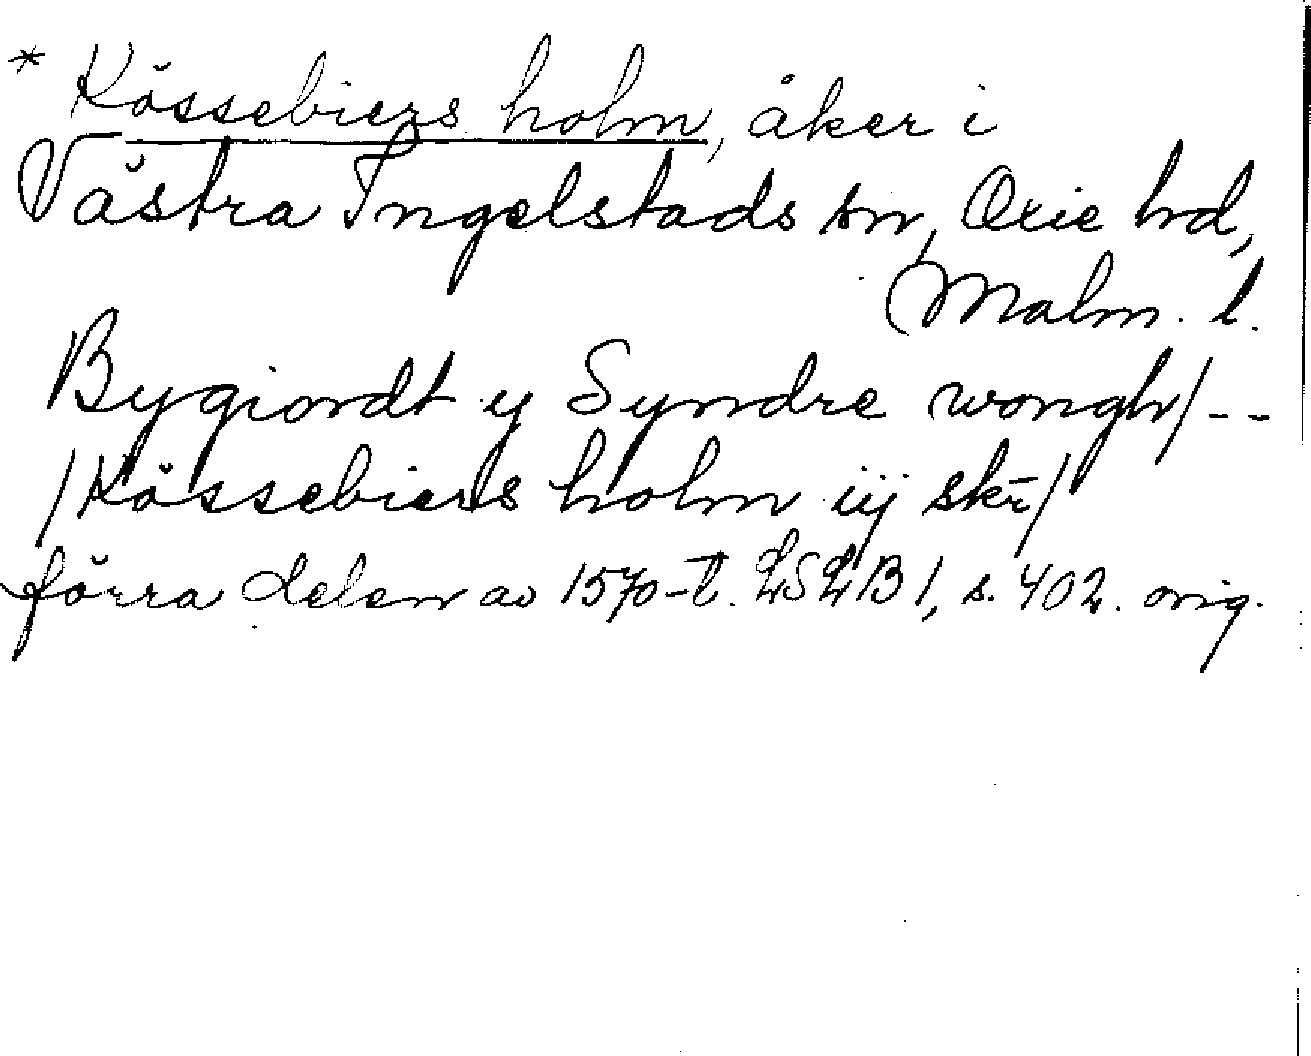 * Kössebiers holm, åker i
Västra Ingelstads sn, Oxie hd,
Malm. l.
Bygiordt y Syndre wongh/--
/Kössebiers holm iij skr/
förra delen av 1570-t. LSLB 1, s. 402. orig.